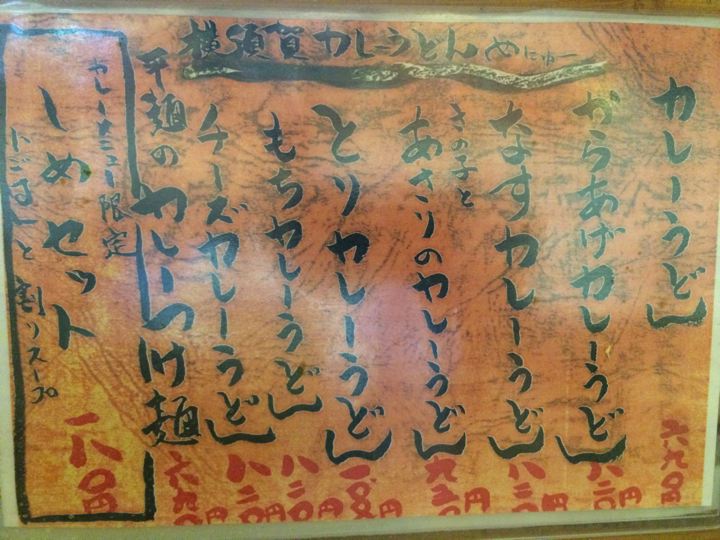 横須賀カレーうどん めにゅー
カレーうどん
六九0円
からあげカレーうどん
八二0円
なすカレーうどん
八二0円
きの子と
あさりのカレーうどん
九三0円
とりカレーうどん
もちカレーうどん
八二0円
チーズカレーうどん
八二0円
平麺のカレーつけ麺
カレーメニュー限定
しめセット
と割りスープ
一八0円